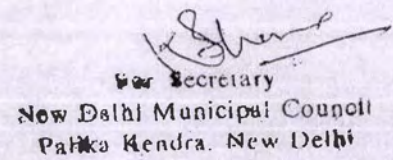 For Secretary
New Delhi Municipal Council
Palika Kendra. New Delhi